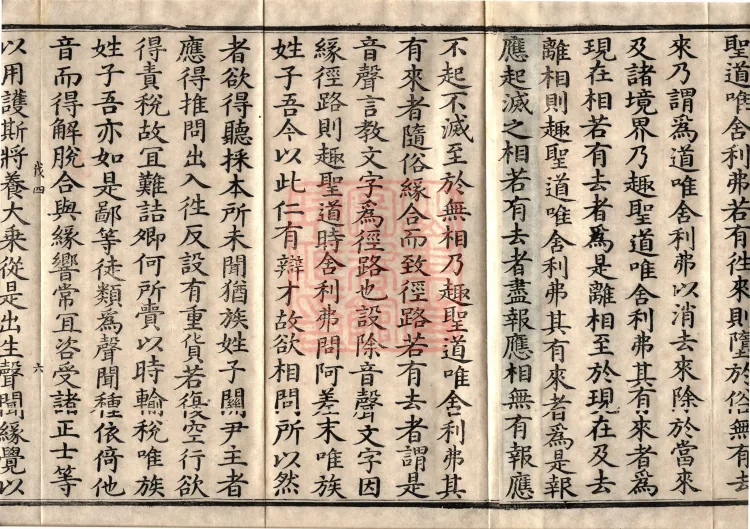 聖道唯舍利弗若有往來則墮於俗無有去
來乃謂爲道唯舍利弗以消去來除於當來
及諸境界乃趣聖道唯舍利弗其有來者爲
現在相若有去者爲是離相至於現在及去
離相則趣聖道唯舍利弗其有來者爲是報
應起滅之相若有去者盡報應相無有報應
不起不滅至於無相乃趣聖道唯舍利弗其
有來者隨俗緣合而致徑路若有去者謂是
音聲言教文字爲徑路也設除音聲文字因
緣徑路則趣聖道時舍利弗問阿差末唯族
姓子吾今以此仁有辯才故欲相問所以然
者欲得聽採本所未聞猶族姓子關尹主者
應得推問出入往反設有重貨若復空行欲
得責稅故宜難詰卿何所賷以時輸稅唯族
姓子吾亦如是鄙等徒類爲聲聞種依倚他
音而得解脫合與緣響常宜咨受諸正士等
茂四 六
以用護斯將養大乘從是出生聲聞緣覺以